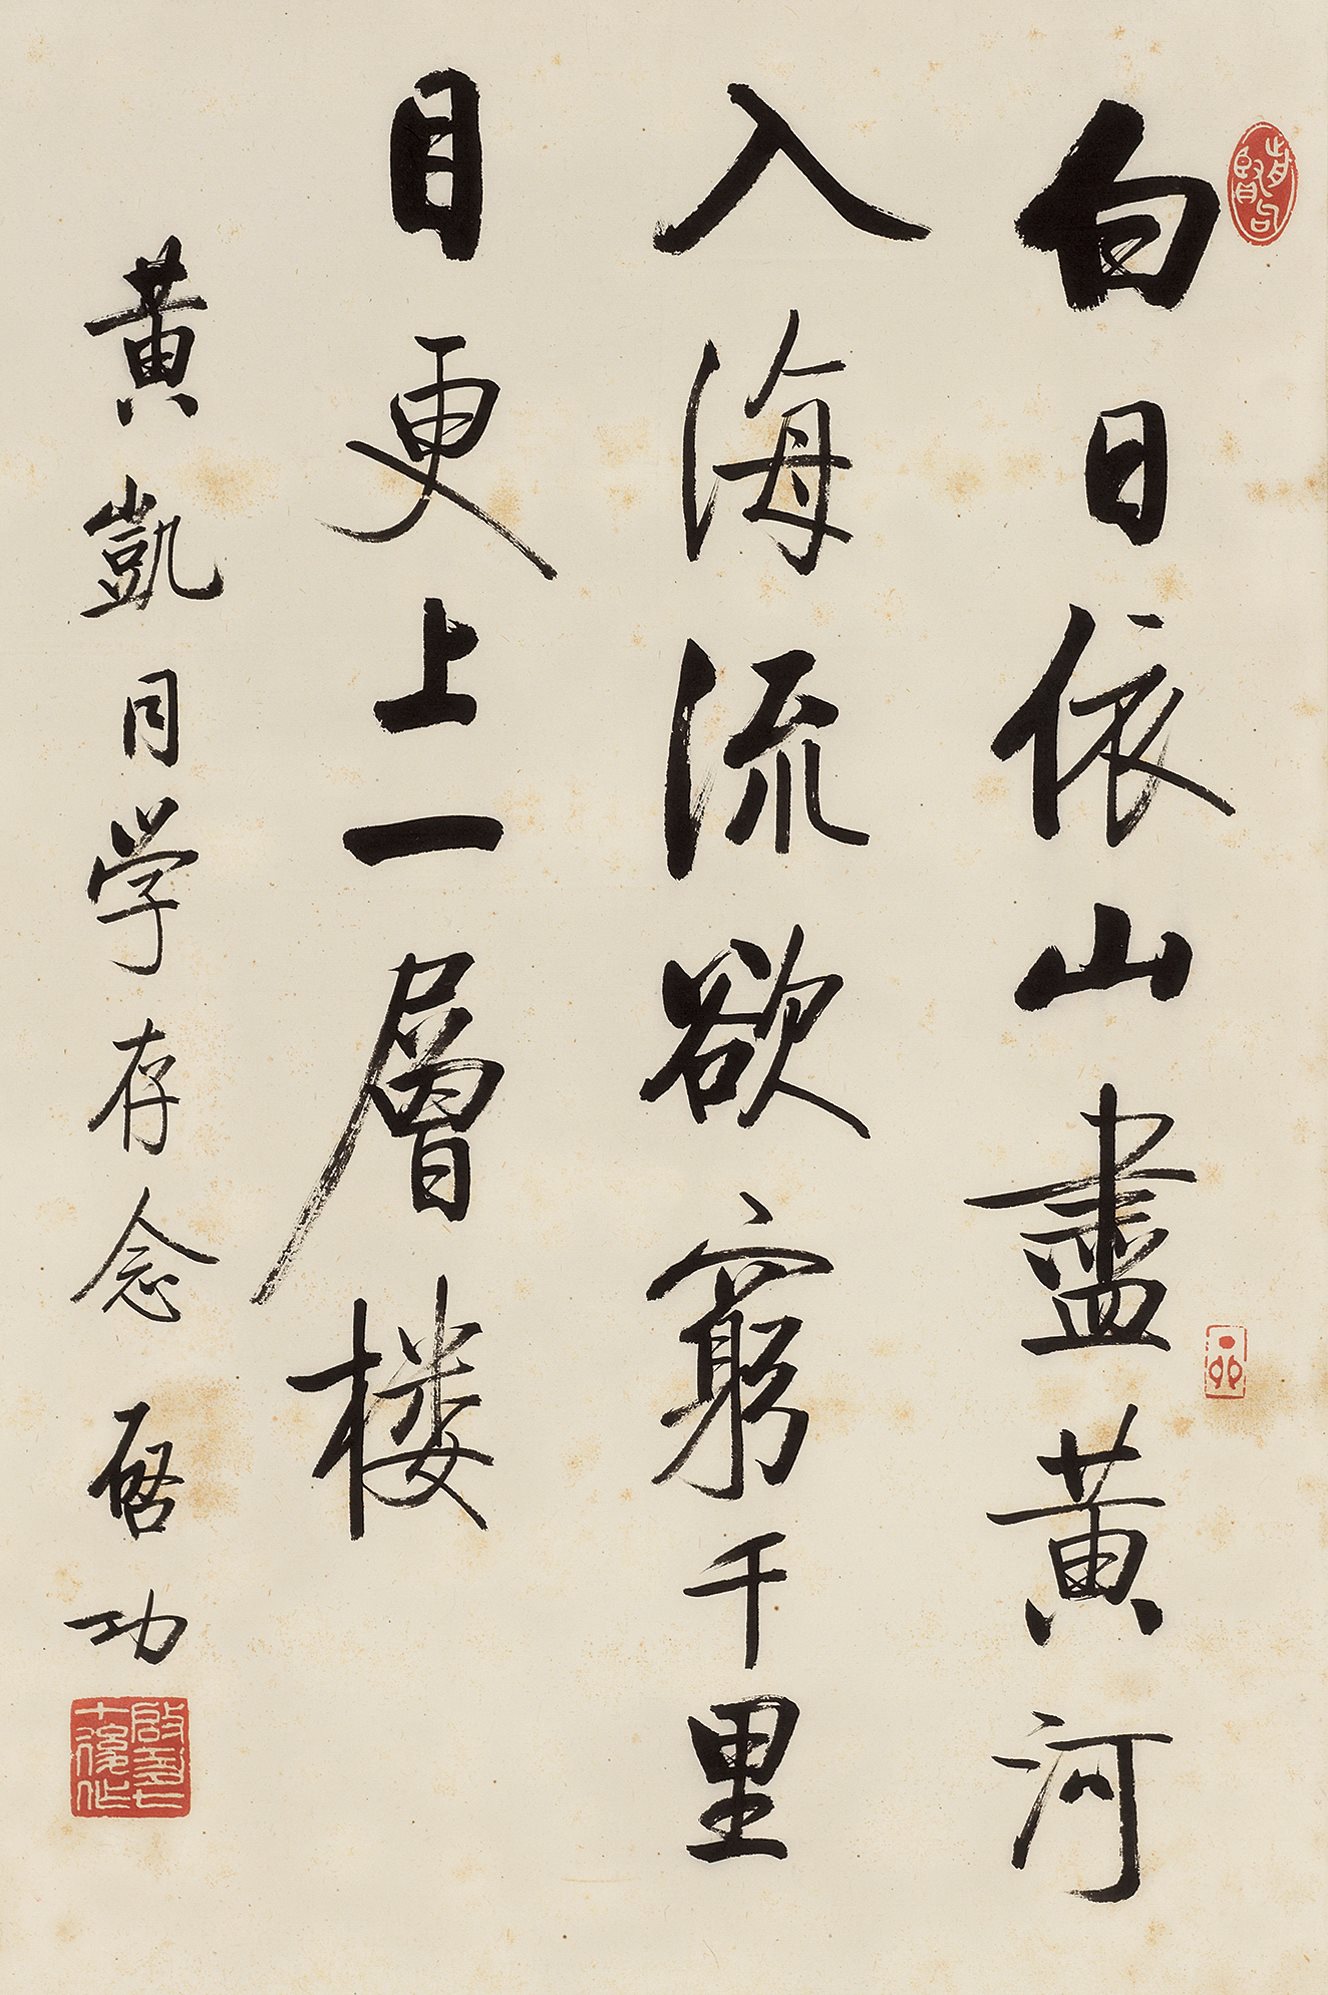 白日依山盡黄河
入海流欲窮千里
目更上一層楼
黄凱同学存念 启功